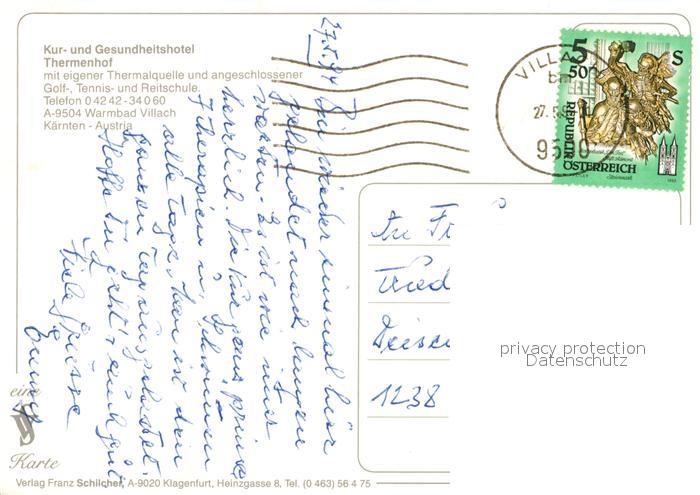 Kur- und Gesundheitshotel
Thermenhof
mit eigener Thermalquelle und angeschlossener
Golf-, Tennis- und Reitschule.
Telefon 0 42 42 - 34 0 60
A-9504 Warmbad Villach
Kärnten - Austria
27.5.94
Bin wieder einmal hier
gelandet nach langem
warten. Es ist wie immer
herzlich. Die Kur ganz prima
Therapien u. Schwimmen
alle Tage. Man ist den
ganzen Tag ausgelastet.
Hoffe Dir geht's auch gut
Viele Grüsse
VILLACH
27.5.
9500
5 50 S
REPUBLIK
ÖSTERREICH
An Fr
Fried
1238
privacy protection
Datenschutz
eine
Karte
Verlag Franz Schilcher, A-9020 Klagenfurt, Heinzgasse 8, Tel. (0 463) 56 4 75